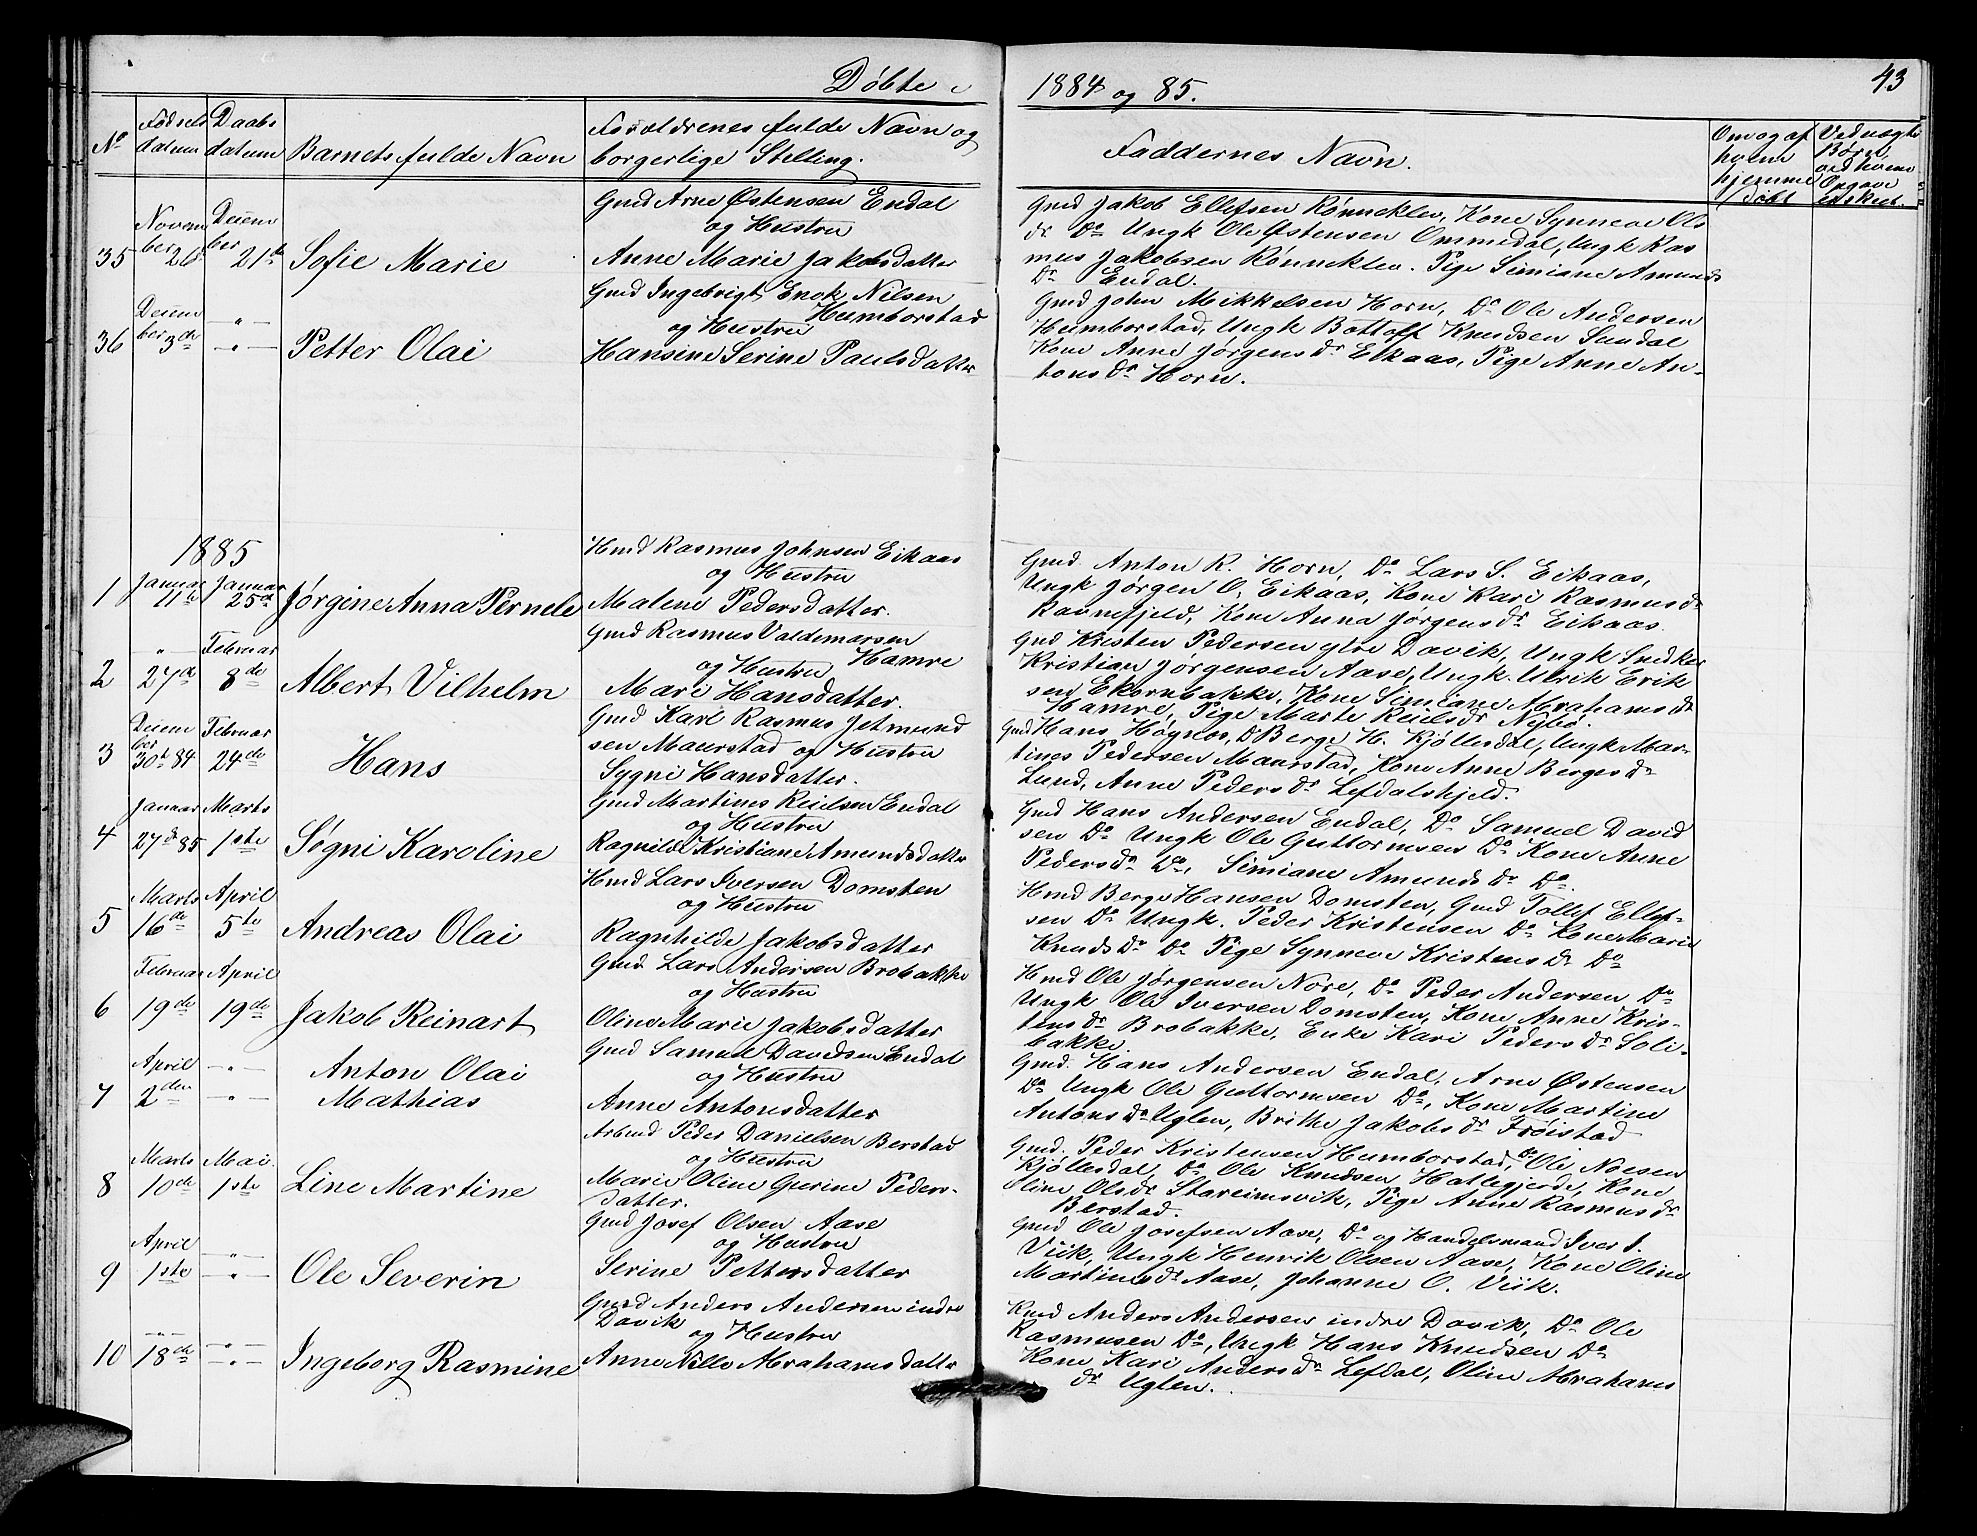 Døbte i 1884 og 85. 43
No
Fødsels datum
Daabs datum
Barnets fulde Navn
Forældrenes fulde Navn og
borgerlige Stilling.
Faddernes Navn.
Om og af
hvem
hjemme
døbt
Ved uægte
Børn
ved hvem
Opgave
indskut.
35
Novem
ber 26
Decem
ber 21de
Sofie Marie
Gmd Arne Østensen Endal
og Hustru
Anne Marie Jakobsdatter
Gmd Jakob Ellefsen Rønneklev, Kone Synneve Ols
dr Do Ungk Ole Østensen Ommedal, Ungk Ras
mus Jakobsen Rønneklev. Pige Simiane Amunds
Dr Endal.
36
Decem
ber 3die
—"—
—"—
Petter Olai
Gmd Ingebrigt Enok Nilsen
Humborstad
og Hustru
Hansine Serine Paulsdatter
Gmd John Mikkelsen Horn, Do Ole Andersen
Humborstad, Ungk Bottolf Knudsen Sundal
Kone Anne Jørgens dr Eikaas, Pige Anne An-
tons dr Horn.
1885
1
Januar
11te
Januar
25de
Jørgine Anna Pernele
Hmd Rasmus Johnsen Eikaas
og Hustru
Malene Pedersdatter.
Gmd Anton R. Horn, Do Lars S. Eikaas,
Ungk Jørgen O. Eikaas, Kone Kari Rasmus dr
Ravnefjeld, Kone Anna Jørgens dr Eikaas.
2
—"—
27de
Februar
8de
Albert Vilhelm
Gmd Rasmus Valdemarsen
og Hustru Hamre
Mari Hansdatter.
Gmd Kristen Pedersen ytre Davik, Ungk Snedker
Kristian Jørgensen Aase, Ungk. Ulrik Erik
sen Ekornbakke, Kone Simiane Abrahams dr
Hamre, Pige Marte Reiels dr Nybø.
3
Decem
ber
30te 84
Februar
24de
Hans
Gmd Karl Rasmus Jetmund
sen Maurstad og Hustru
Sygni Hansdatter.
Gmd Hans Høgnes, Do Berge H. Kjøllesdal, Ungk Mar-
tines Pedersen Maurstad, Kone Anne Berges dr
Lund, Anne Peders dr Lefdalshjeld.
4
Januar
27de 85
Marts
1ste
Søgni Karoline
Gmd Martines Reielsen Endal
og Hustru
Ragnilde Kristiane Amundsdatter
Gmd Hans Andersen Endal, Do Samuel David
sen Do Ungk Ole Guttormsen Do Kone Anne
Peders dr Do, Simiane Amunds dr Do.
5
Marts
16de
April
5te
Andreas Olai
Hmd Lars Iversen Domsten
og Hustru
Ragnhilde Jakobsdatter
Hmd Berge Hansen Domsten, Gmd Tollef Ellef-
sen Do Ungk. Peder Kristensen Do Kone Marie
Knuds dr Do Pige Synneve Kristens dr Do
6
Februar
19de
April
19de
Jakob Reinart
Gmd Lars Andersen Brobakke
og Hustru
Oline Marie Jakobsdatter
Hmd Ole Jørgensen Nore, Do Peder Andersen Do
Ungk Ole Iversen Domsten, Kone Anne Kris-
tens dr Brobakke, Enke Kari Peders dr Soli-
bakke.
7
April
2den
—"—
—"—
Anton Olai
Mathias
Gmd Samuel Davidsen Endal
og Hustru
Anne Antonsdatter
Gmd. Hans Andersen Endal, Arne Østensen
Do Ungk Ole Guttormsen Do, Kone Martine
Antons dr Uglen, Brithe Jakobs dr Frøistad
8
Marts
10de
Mai
1ste
Line Martine
Arbmd Peder Danielsen Berstad
og Hustru
Marie Oline Gurine Peders-
datter.
Gmd. Peder Kristensen Humborstad, Do Ole Noesen
Kjøllesdal, Do Ole Knudsen Hatlegjerde, Kone
Oline Ols dr Stareimsvik, Pige Anne Rasmus dr
Berstad.
9
April
1ste
—"—
—"—
Ole Severin
Gmd Josef Olsen Aase
og Hustru
Serine Pettersdatter
Gmd Ole Josefsen Aase, Do og Handelsmand Iver I.
Viik, Ungk Henrik Olsen Aase, Kone Oline
Martins dr Aase, Johanne O. Viik.
10
—"—
18de
—"—
—"—
Ingeborg Rasmine
Gmd Anders Andersen indre
Davik og Hustru
Anne Nille Abrahamsdatter
Kmd Anders Andersen indre Davik, Do Ole
Rasmusen Do, Ungk Hans Knudsen Do
Kone Kari Anders dr Lefdal, Oline Abrahams
dr Uglen.